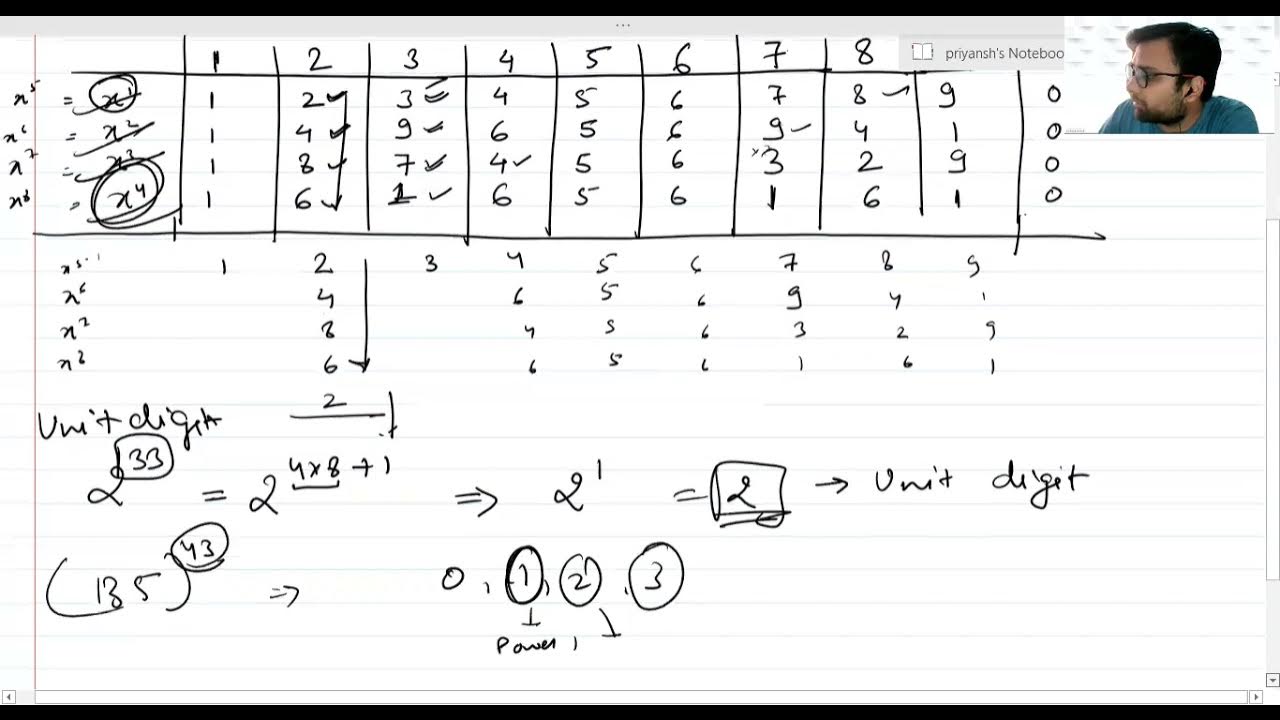 ...
1 2 3 4 5 6 7 8
priyansh's Notebook
x⁵ = x¹ 1 2 3 4 5 6 7 8 9 0
x⁶ = x² 1 4 9 6 5 6 9 4 1 0
x⁷ = x³ 1 8 7 4 5 6 3 2 9 0
x⁸ = x⁴ 1 6 1 6 5 6 1 6 1 0
1 2 3 4 5 6 7 8 9
x⁶ 4 6 5 6 9 4 1
8 4 5 6 3 2 9
6 6 5 6 1 6 1
2
Unit digit
2³³ = 2⁴ˣ⁸⁺¹ ⇒ 2¹ = 2 → Unit digit
(135)⁴³ ⇒ 0, 1, 2, 3
Power 1